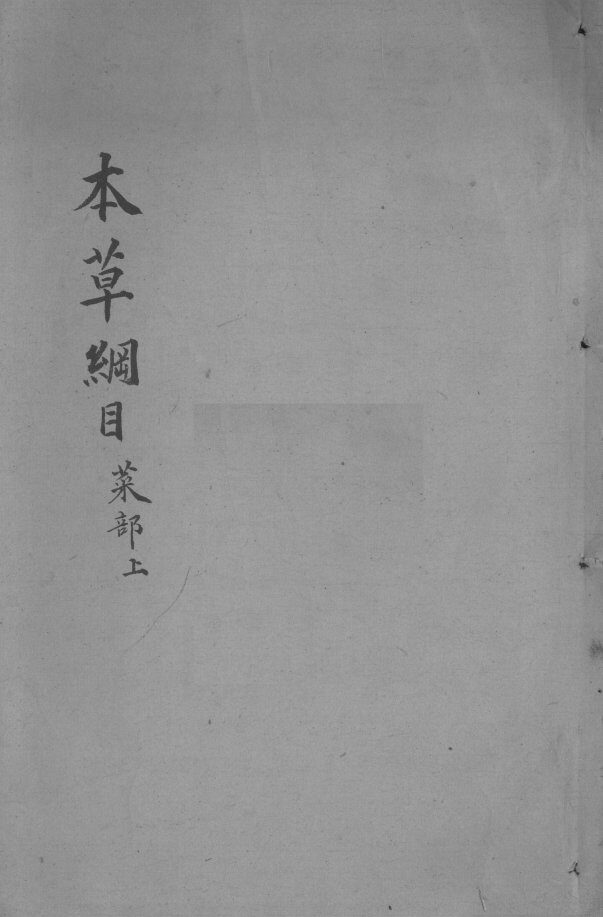 本草綱目
菜部上